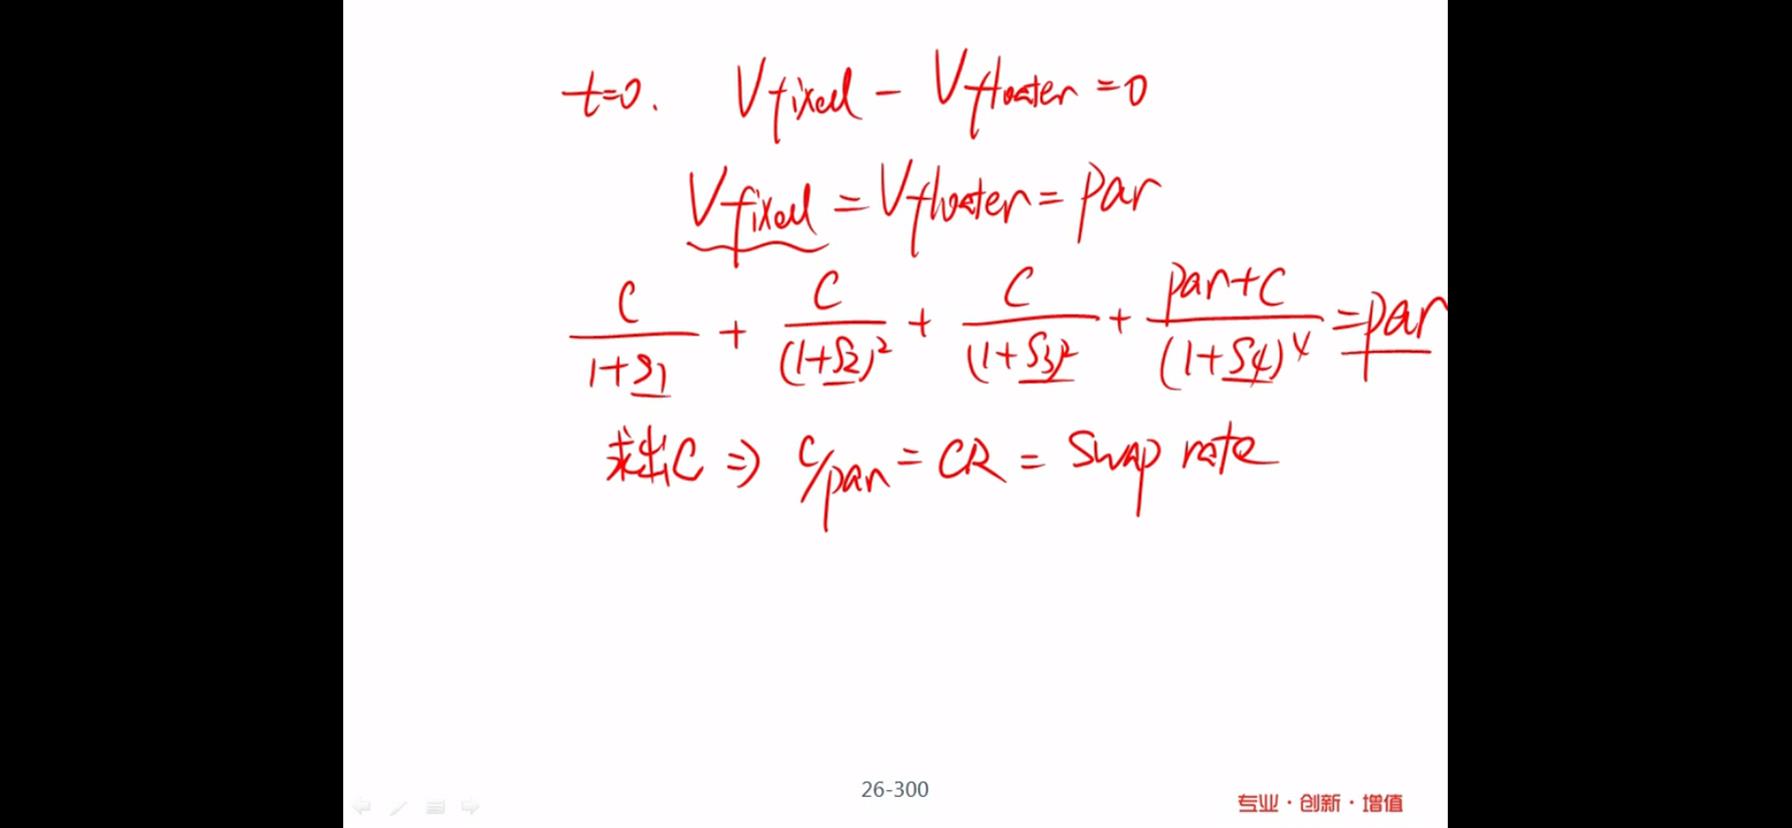 t=0. Vfixed - Vfloater = 0
Vfixed = Vfloater = par
C/(1+S1) + C/(1+S2)² + C/(1+S3)² + (par+C)/(1+S4)⁴ = par
求出C ⇒ C/par = CR = Swap rate
26-300
专业·创新·增值